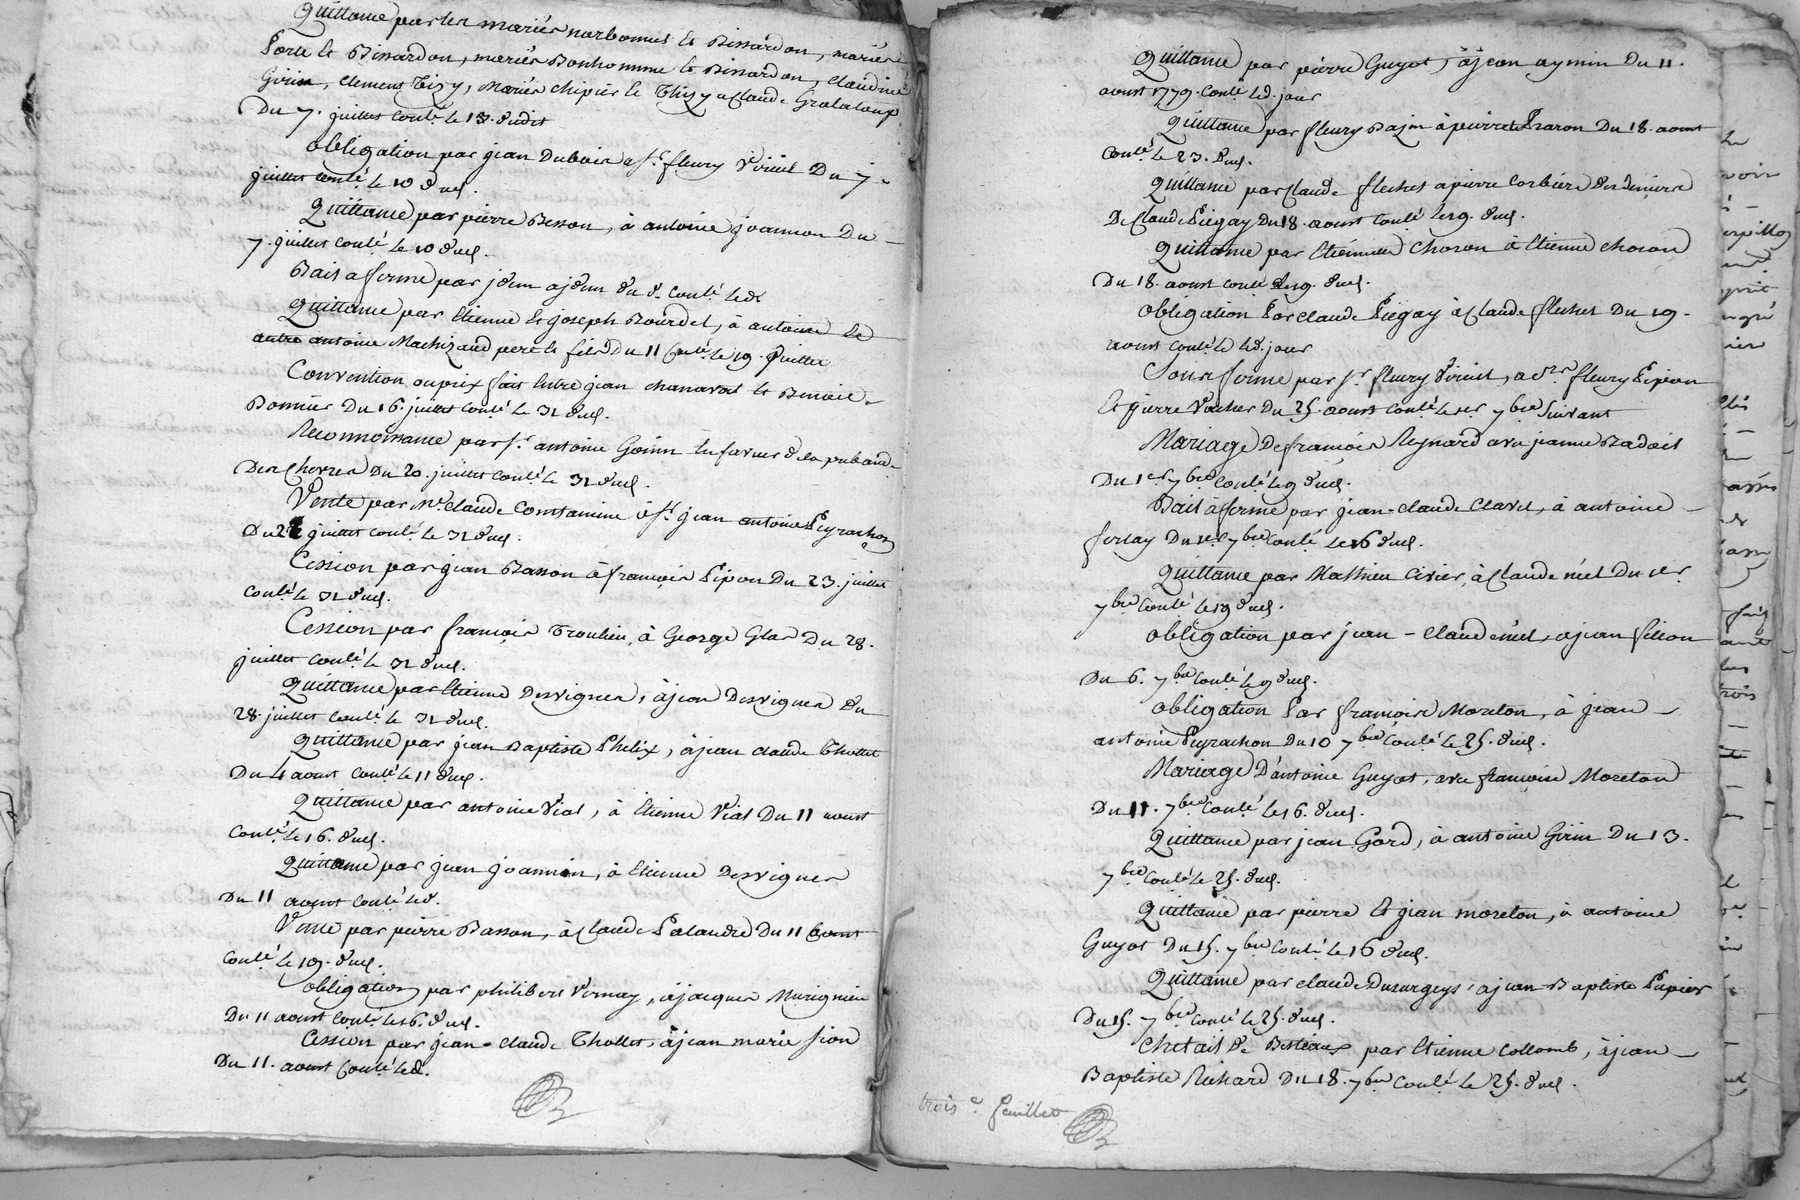 Quittance par les mariés narbonnet et Bissardon, mariés
Porte et Bissardon, mariés Bonhomme et Bissardon, claudine
Girin, clement Tisy, mariés chipier et Thizy a Claude Grataloup
Du 7. juillet conlé le 13. dudit
obligation par jean Dubois a sr. fleury Viricel Du 7.
juillet conlé le 10 dud.
Quittance par pierre Besson, à antoine joannon Du
7. juillet conlé le 10 dud.
Bail a ferme par jdem ajdem du d. conlé led.
Quittance par Etienne et joseph Bourdel, à antoine et
autre antoine Machizaud pere et fils Du 11 Conlé le 19. Juillet
Convention ou prix fait Entre jean chanavat et Benoit
Bonnier Du 16. juillet conlé le 31 dud.
Reconnoissance par sr. antoine Goinn En faveur de la prebande
Des Cherres Du 20. juillet conlé le 31 dud.
Vente par Mr. Claude Constamine à sr. jean antoine Peyrachon
Du 22 juillet conlé le 31 dud.
Cession par jean Basson à françois Pipon Du 23. juillet
conlé le 31 dud.
Cession par françois Troulieu, à George Glas Du 28.
juillet conlé le 31 dud.
Quittance par Etienne Desvignes, à jean Desvignes du
28. juillet conlé le 31 dud.
Quittance par jean Baptiste Phelix, à jean claude Thollet
Du 4 aoust conlé le 11 dud.
Quittance par antoine Vial, à Etienne Vial Du 11 aoust
Conlé le 16. dud.
Quittance par jean joannin, à Etienne Desvignes
Du 11 aoust conlé led.
Vente par pierre Basson, à Claude Palandre Du 11 aoust
conlé le 19. dud.
obligation par philibert Vernay, à jacques Murigneu
Du 11 aoust conlé le 16. dud.
Cession par jean-claude Thollet, à jean marie sion
Du 11. aoust conlé led.
Quittance par pierre Guyot, à jean aymin Du 11.
aoust 1779. conlé led. jour
Quittance par fleury Bajon à pierre Baron Du 18. aoust
conlé le 23. dud.
Quittance par Claude fleches a pierre Corbiere des deniers
De Claude Piégay Du 18. aoust conlé le 19. dud.
Quittance par Etiennette Choron à Etienne choron
Du 18. aoust conlé le 19. dud.
obligation Par claude Piégay à Claude fleches Du 19.
aoust conlé le led. jour
Sous ferme par sr. fleury Viricel, a srs. fleury Pipon
Et pierre Vacher Du 25. aoust conlé le 1er 7bre suivant
Mariage De françois Reynard avec jeanne Badoil
Du 1er 7bre conlé le 9 dud.
Bail à ferme par jean-claude Clavel, à antoine
ferlay Du 1er 7bre conlé le 16 dud.
Quittance par Mathieu Civier, à Claude niel Du 1er
7bre conlé le 19 dud.
obligation par jean-claude niel, a jean filion
Du 6. 7bre conlé le 9 dud.
obligation Par françoise Moreton, à jean
antoine Peyrachon Du 10 7bre conlé le 25. dud.
Mariage D'antoine Guyot, avec françoise Moreton
Du 11. 7bre conlé le 16. dud.
Quittance par jean Gord, à antoine Girin Du 13.
7bre conlé le 25. dud.
Quittance par pierre Et jean moreton, à antoine
Guyot Du 15. 7bre conlé le 16 dud.
Quittance par claude Dusurgeys, a jean-Baptiste Papier
Du 15. 7bre conlé le 25. dud.
Chetail de Bestiaux par Etienne Collomb, à jean
Baptiste Richard Du 18. 7bre conlé le 25. dud.
trois e. feuillet